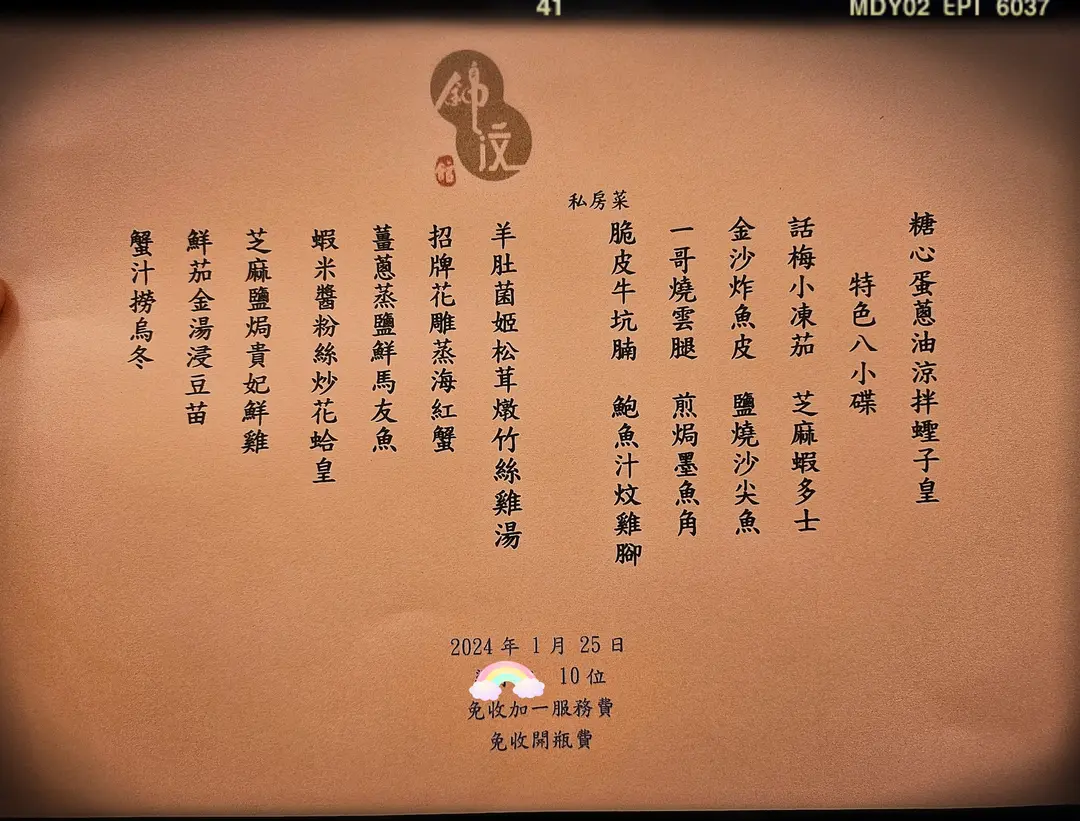 41
MDY02 EPI 6037
錦汶
館
私房菜
糖心蛋蔥油涼拌蟶子皇
特色八小碟
話梅小凍茄 芝麻蝦多士
金沙炸魚皮 鹽燒沙尖魚
一哥燒雲腿 煎焗墨魚角
脆皮牛坑腩 鮑魚汁炆雞腳
羊肚菌姬松茸燉竹絲雞湯
招牌花雕蒸海紅蟹
薑蔥蒸鹽鮮馬友魚
蝦米醬粉絲炒花蛤皇
芝麻鹽焗貴妃鮮雞
鮮茄金湯浸豆苗
蟹汁撈烏冬
2024 年 1 月 25 日
10 位
免收加一服務費
免收開瓶費